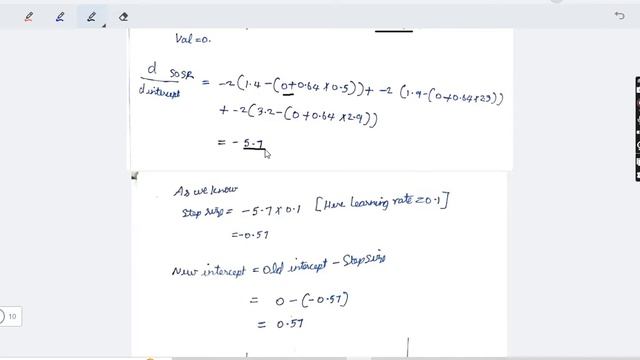 Val=0.
d SOSR
d intercept = -2(1.4-(0+0.64×0.5))+ -2 (1.9-(0+0.64×23))
+ -2(3.2-(0+0.64×2.9))
= -5.7
As we know
Step size = -5.7×0.1 [Here Learning rate=0.1]
=-0.57
New intercept = Old intercept - Stepsize
= 0-(-0.57)
= 0.57
10